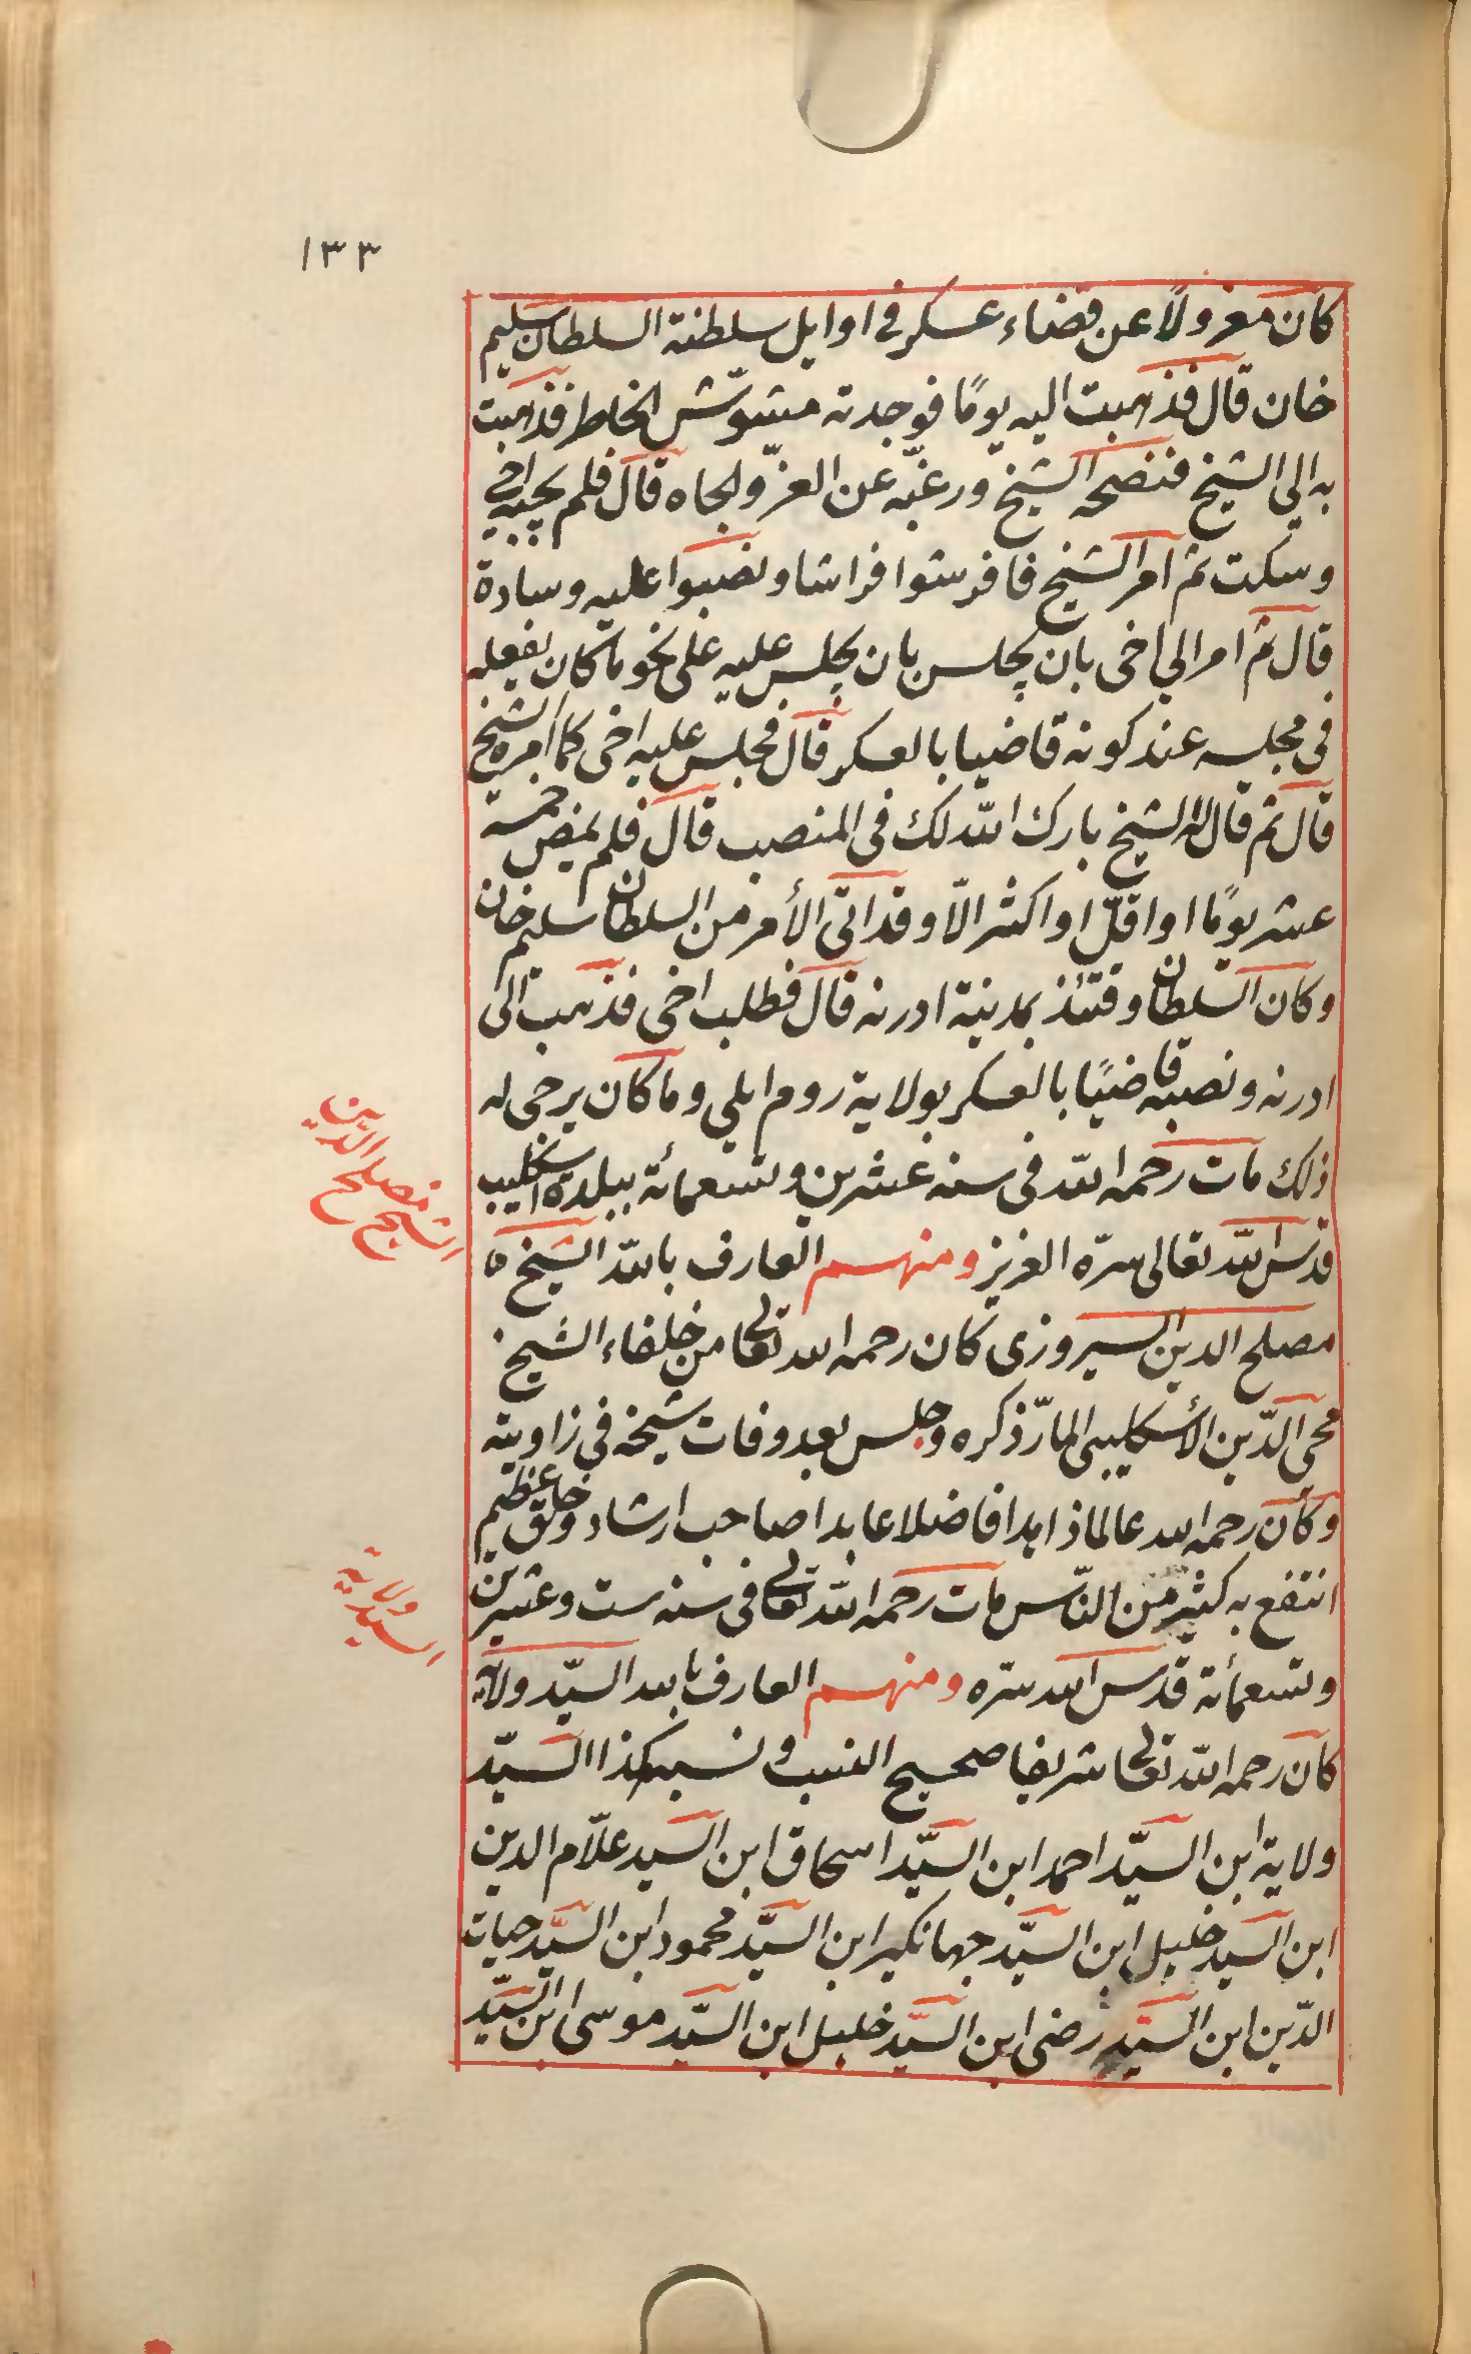 ١٣٣
كان معزولاً عن قضاء عسكر فى اوايل سلطنة السلطان سليم
خان قال فذهبت اليه يومًا فوجدته مشوّش الخاطر فذهبت
به الى الشيخ فنصحه الشيخ ورغبّه عن العزّ والجاه قال فلم يجبه اخى
وسكت ثم امر الشيخ فافرشوا فراشا ونصبوا عليه وسادة
قال ثم امر الى اخى بان يجلس بان يجلس عليه على نحو ما كان يفعله
فى مجلسه عند كونه قاضيا بالعسكر قال فجلس عليه اخى كما امره الشيخ
قال ثم قال له الشيخ بارك الله لك فى المنصب قال فلم يمض خمسة
عشر يومًا او اقلّ او اكثر الّا وقد اتى الأمر من السلطان سليم خان
وكان السلطان وقتئذ بمدينة ادرنه قال فطلب اخى فذهب الى
ادرنه ونصبه قاضيًا بالعسكر بولاية روم ايلى وما كان يرجى له
ذلك مات رحمه الله فى سنه عشرين وتسعمائة ببلدة اسكليب
قدّس الله تعالى سرّه العزيز ومنهم العارف بالله الشيخ
الشيخ مصلح الدين
مصلح الدين السيروزى كان رحمه الله تعالى من خلفاء الشيخ
محى الدّين الأسكليبى المارّ ذكره وجلس بعد وفات شيخه فى زاويته
وكان رحمه الله عالما زاهدا فاضلا عابدا صاحب ارشاد وخلق عظيم
انتفع به كثير من النّاس مات رحمه الله تعالى فى سنه ست وعشرين
السيد ولاية
وتسعمأئة قدّس الله سرّه ومنهم العارف بالله السيّد ولاية
كان رحمه الله تعالى شريفا صحيح النسب ونسبه هكذا السيّد
ولاية ابن السيّد احمد ابن السيّد اسحاق ابن السيد علاّم الدين
ابن السيد خليل ابن السيّد جهانكير ابن السيّد محمود ابن السيّد حيات
الدّين ابن السيّد رضى ابن السيّد خليل ابن السيّد موسى ابن السيّد